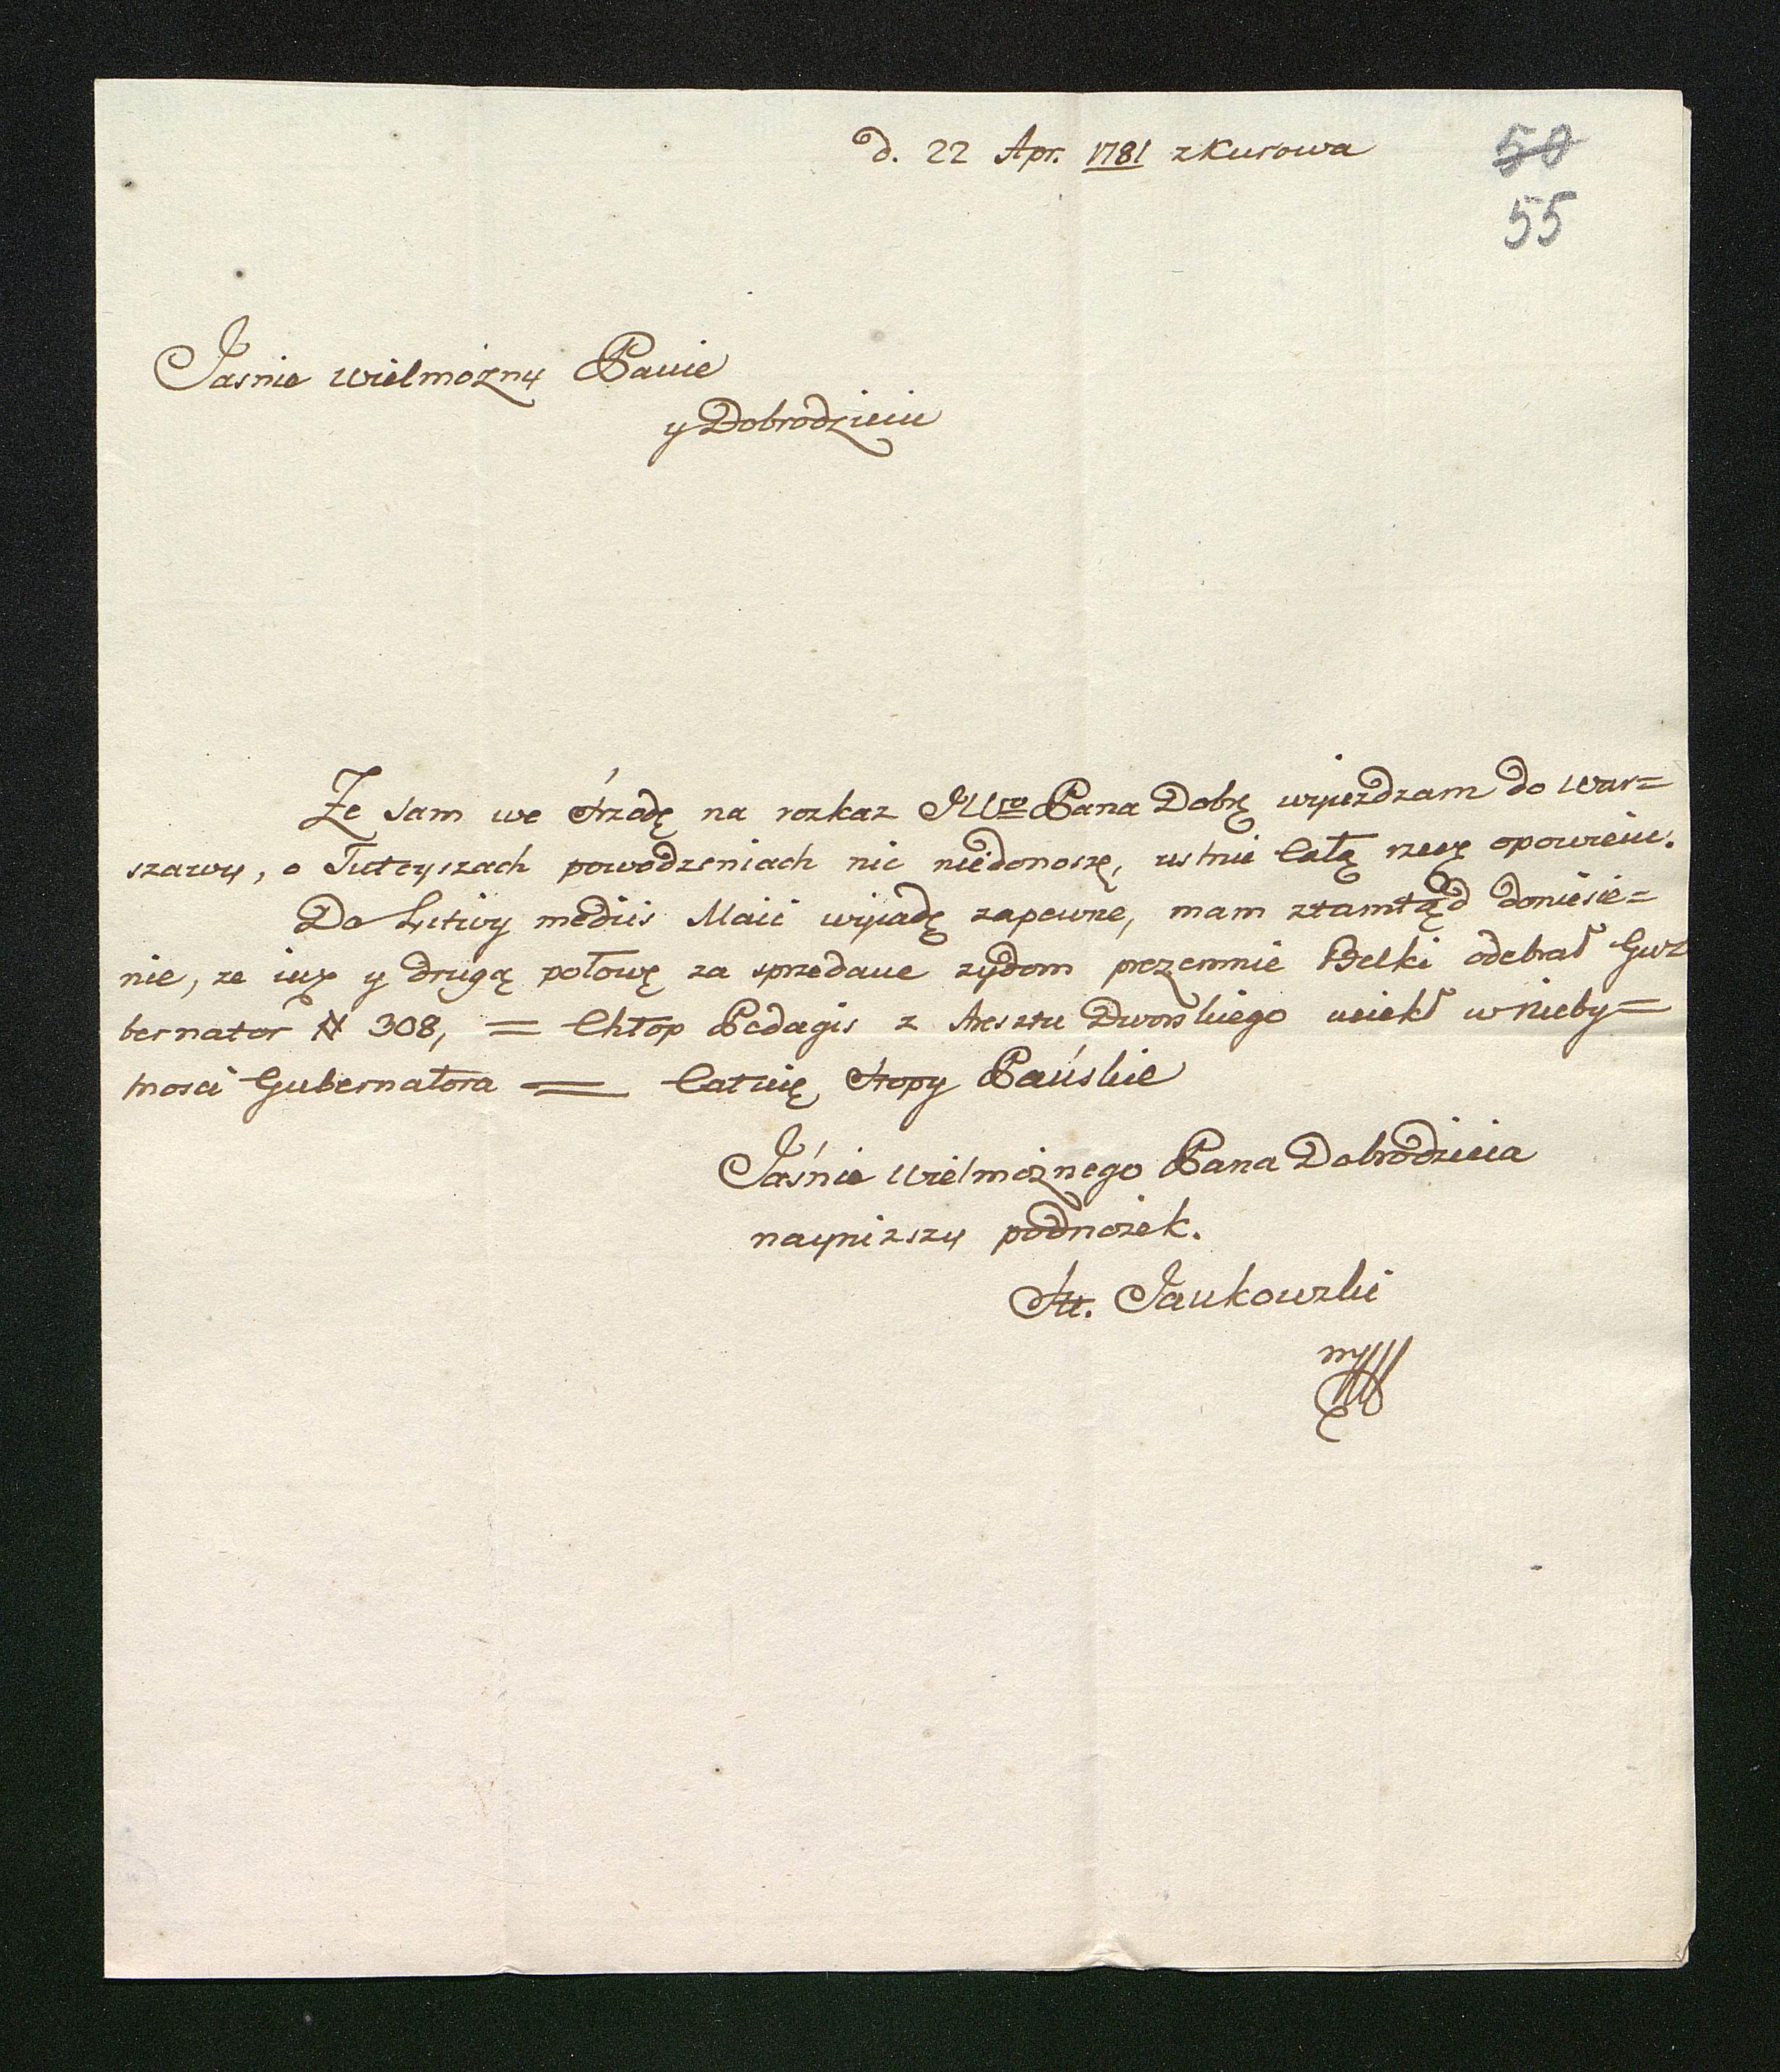 d. 22 Apr. 1781 z Kurowa
50
55
Jasnie wielmozny Panie
y Dobrodzieiu
Ze sam we Srzodę na rozkaz JWo Pana Dobr wyieżdzam do War=
szawy, o Tuteyszach powodzeniach nic niedonoszę, ustnie Całą rzecz opowiem.
Do Litwy mediis Maii wyiadę zapewne, mam ztamtąd doniesie=
nie, ze iuz y drugą połowę za sprzedane zydom przezemnie Belki odebrał Gu=
bernator # 308, = Chłop Pedagis z Aresztu Dworskiego uciekł w nieby=
tnosci Gubernatora = Całuię Stopy Pańskie
Jaśnie Wielmoznego Pana Dobrodzieia
nayniższy podnożek.
St. Jankowski